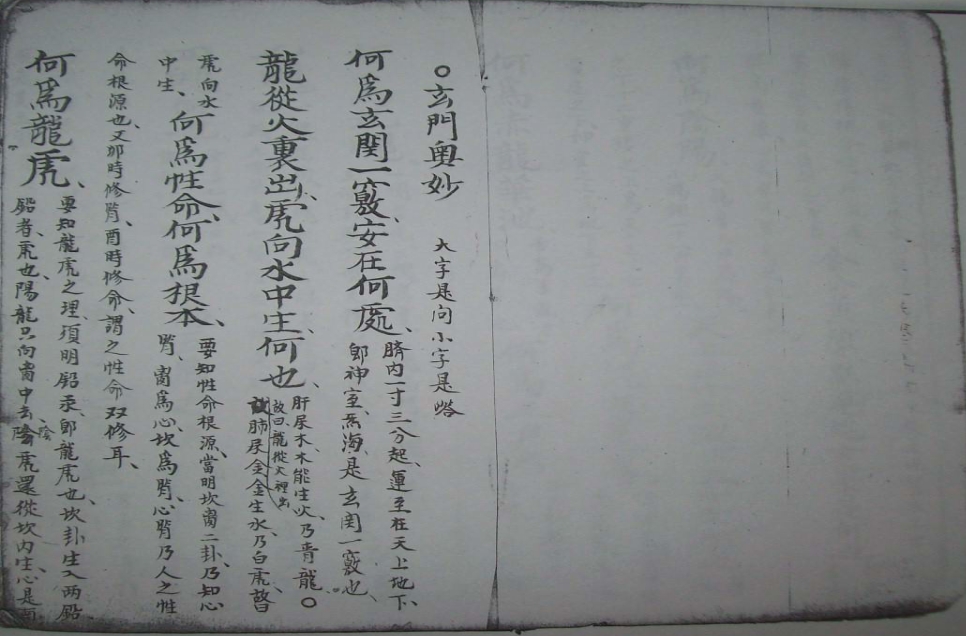 ○玄門奧妙 大字是问小字是答
何為玄関一竅、安在何處、臍内一寸三分起、運至在天上地下、
即神室、炁海、是玄関一竅也、
龍從火裏出、虎向水中生、何也、肝屍木、木能生火、乃青龍○
故曰龍從火裡出
肺屍金、金生水、乃白虎、故曰
虎向水
中生、何為性命、何為根本、要知性命根源、當明坎离二卦、乃知心
腎、离為心、坎為腎、心腎乃人之性
命根源也、又卯時修腎、酉時修命、謂之性命双修耳、
何為龍虎、要知龍虎之理、須明鉛汞、即龍虎也、坎卦生入两鉛
鉛者、虎也、陽龍只向离中去、陰虎還從坎内生、心是